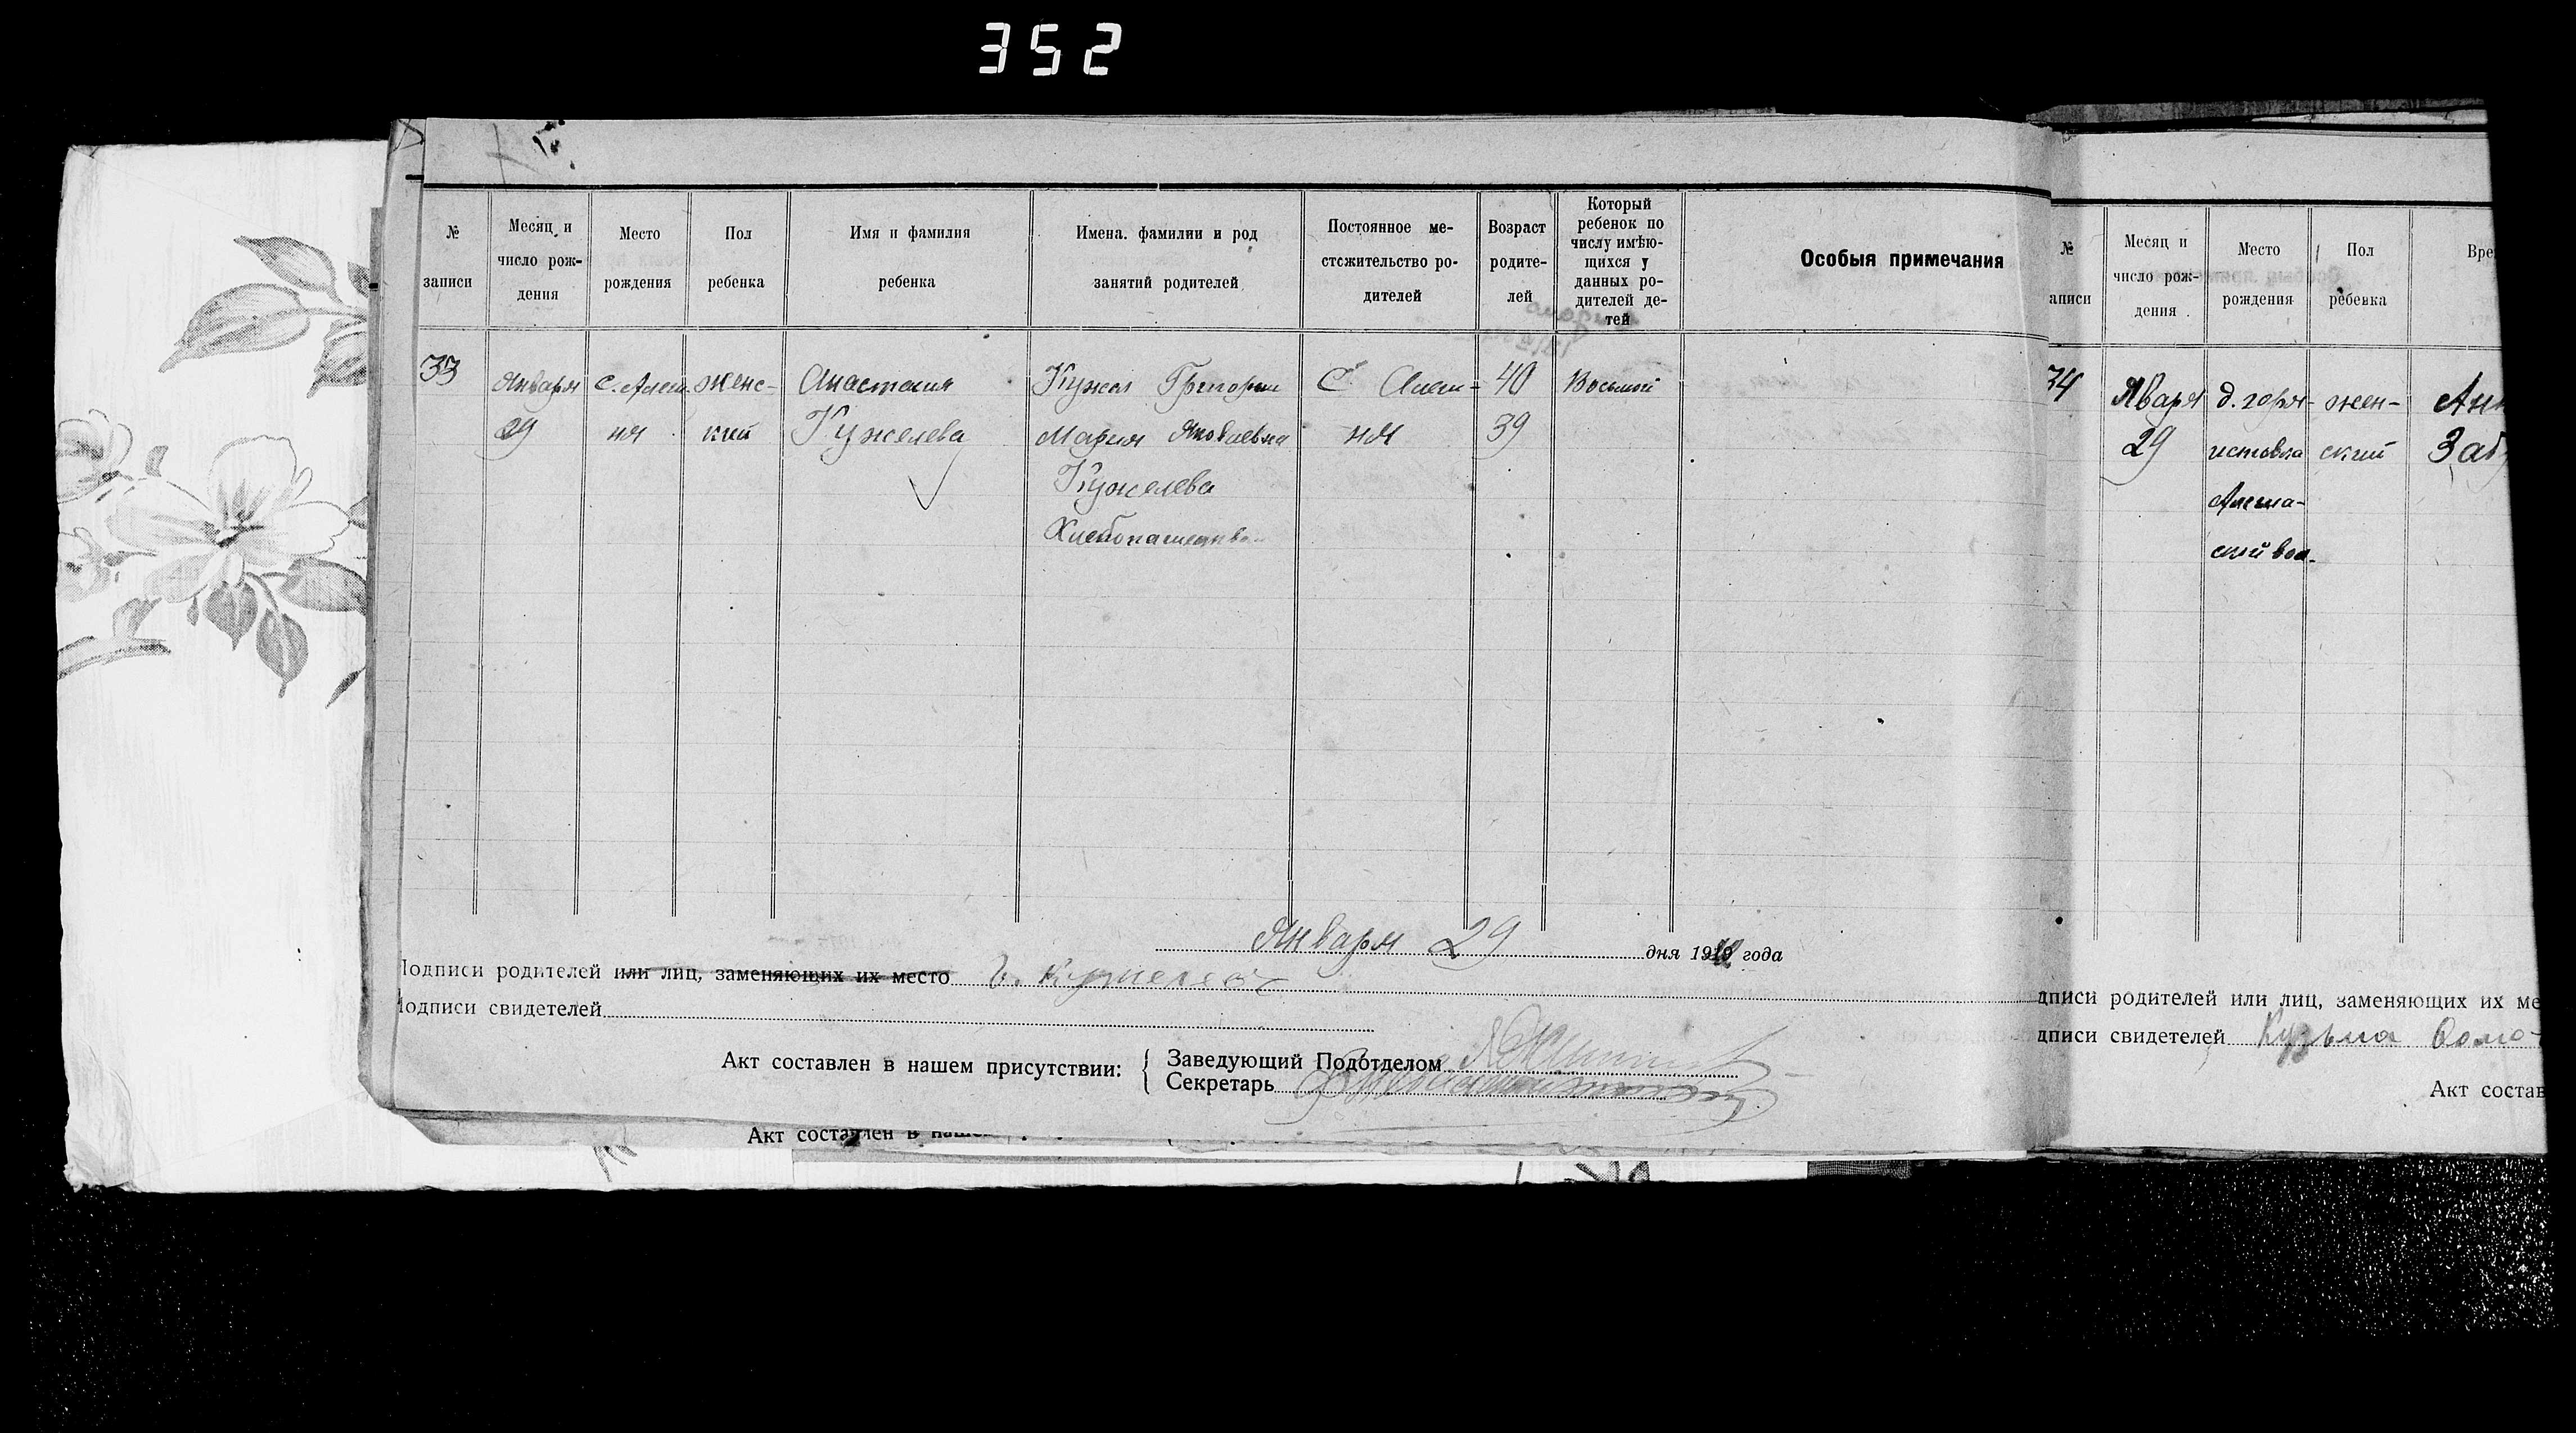 352
№ записи
Месяц и число рождения
Место рождения
Пол ребенка
Имя и фамилия ребенка
Имена. фамилии и род занятий родителей
Постоянное местожительство родителей
Возраст родителей
Который ребенок по числу имѣющихся у данных родителей детей
Особыя примечания
33
Января
29
с. Алеш-
ня
женс-
кий
Анастасия
Кужелева
Кужел Григории
Мария Яковлевна
Кужелева
Хлебопашество
С. Алеш-
ня
40
39
Восьмой
Января 29 дня 19 года
Подписи родителей или лиц, заменяющих их место Г. Кужелев
Подписи свидетелей
Акт составлен в нашем присутствии:
Заведующий Подотделом
Секретарь
Акт составлен в наше
№ аписи
Месяц и число рождения
Место рождения
Пол ребенка
Вре
34
Января
29
женский
Анн
Заб
дписи родителей или лиц, заменяющих их ме
дписи свидетелей Кузьма
Акт состав